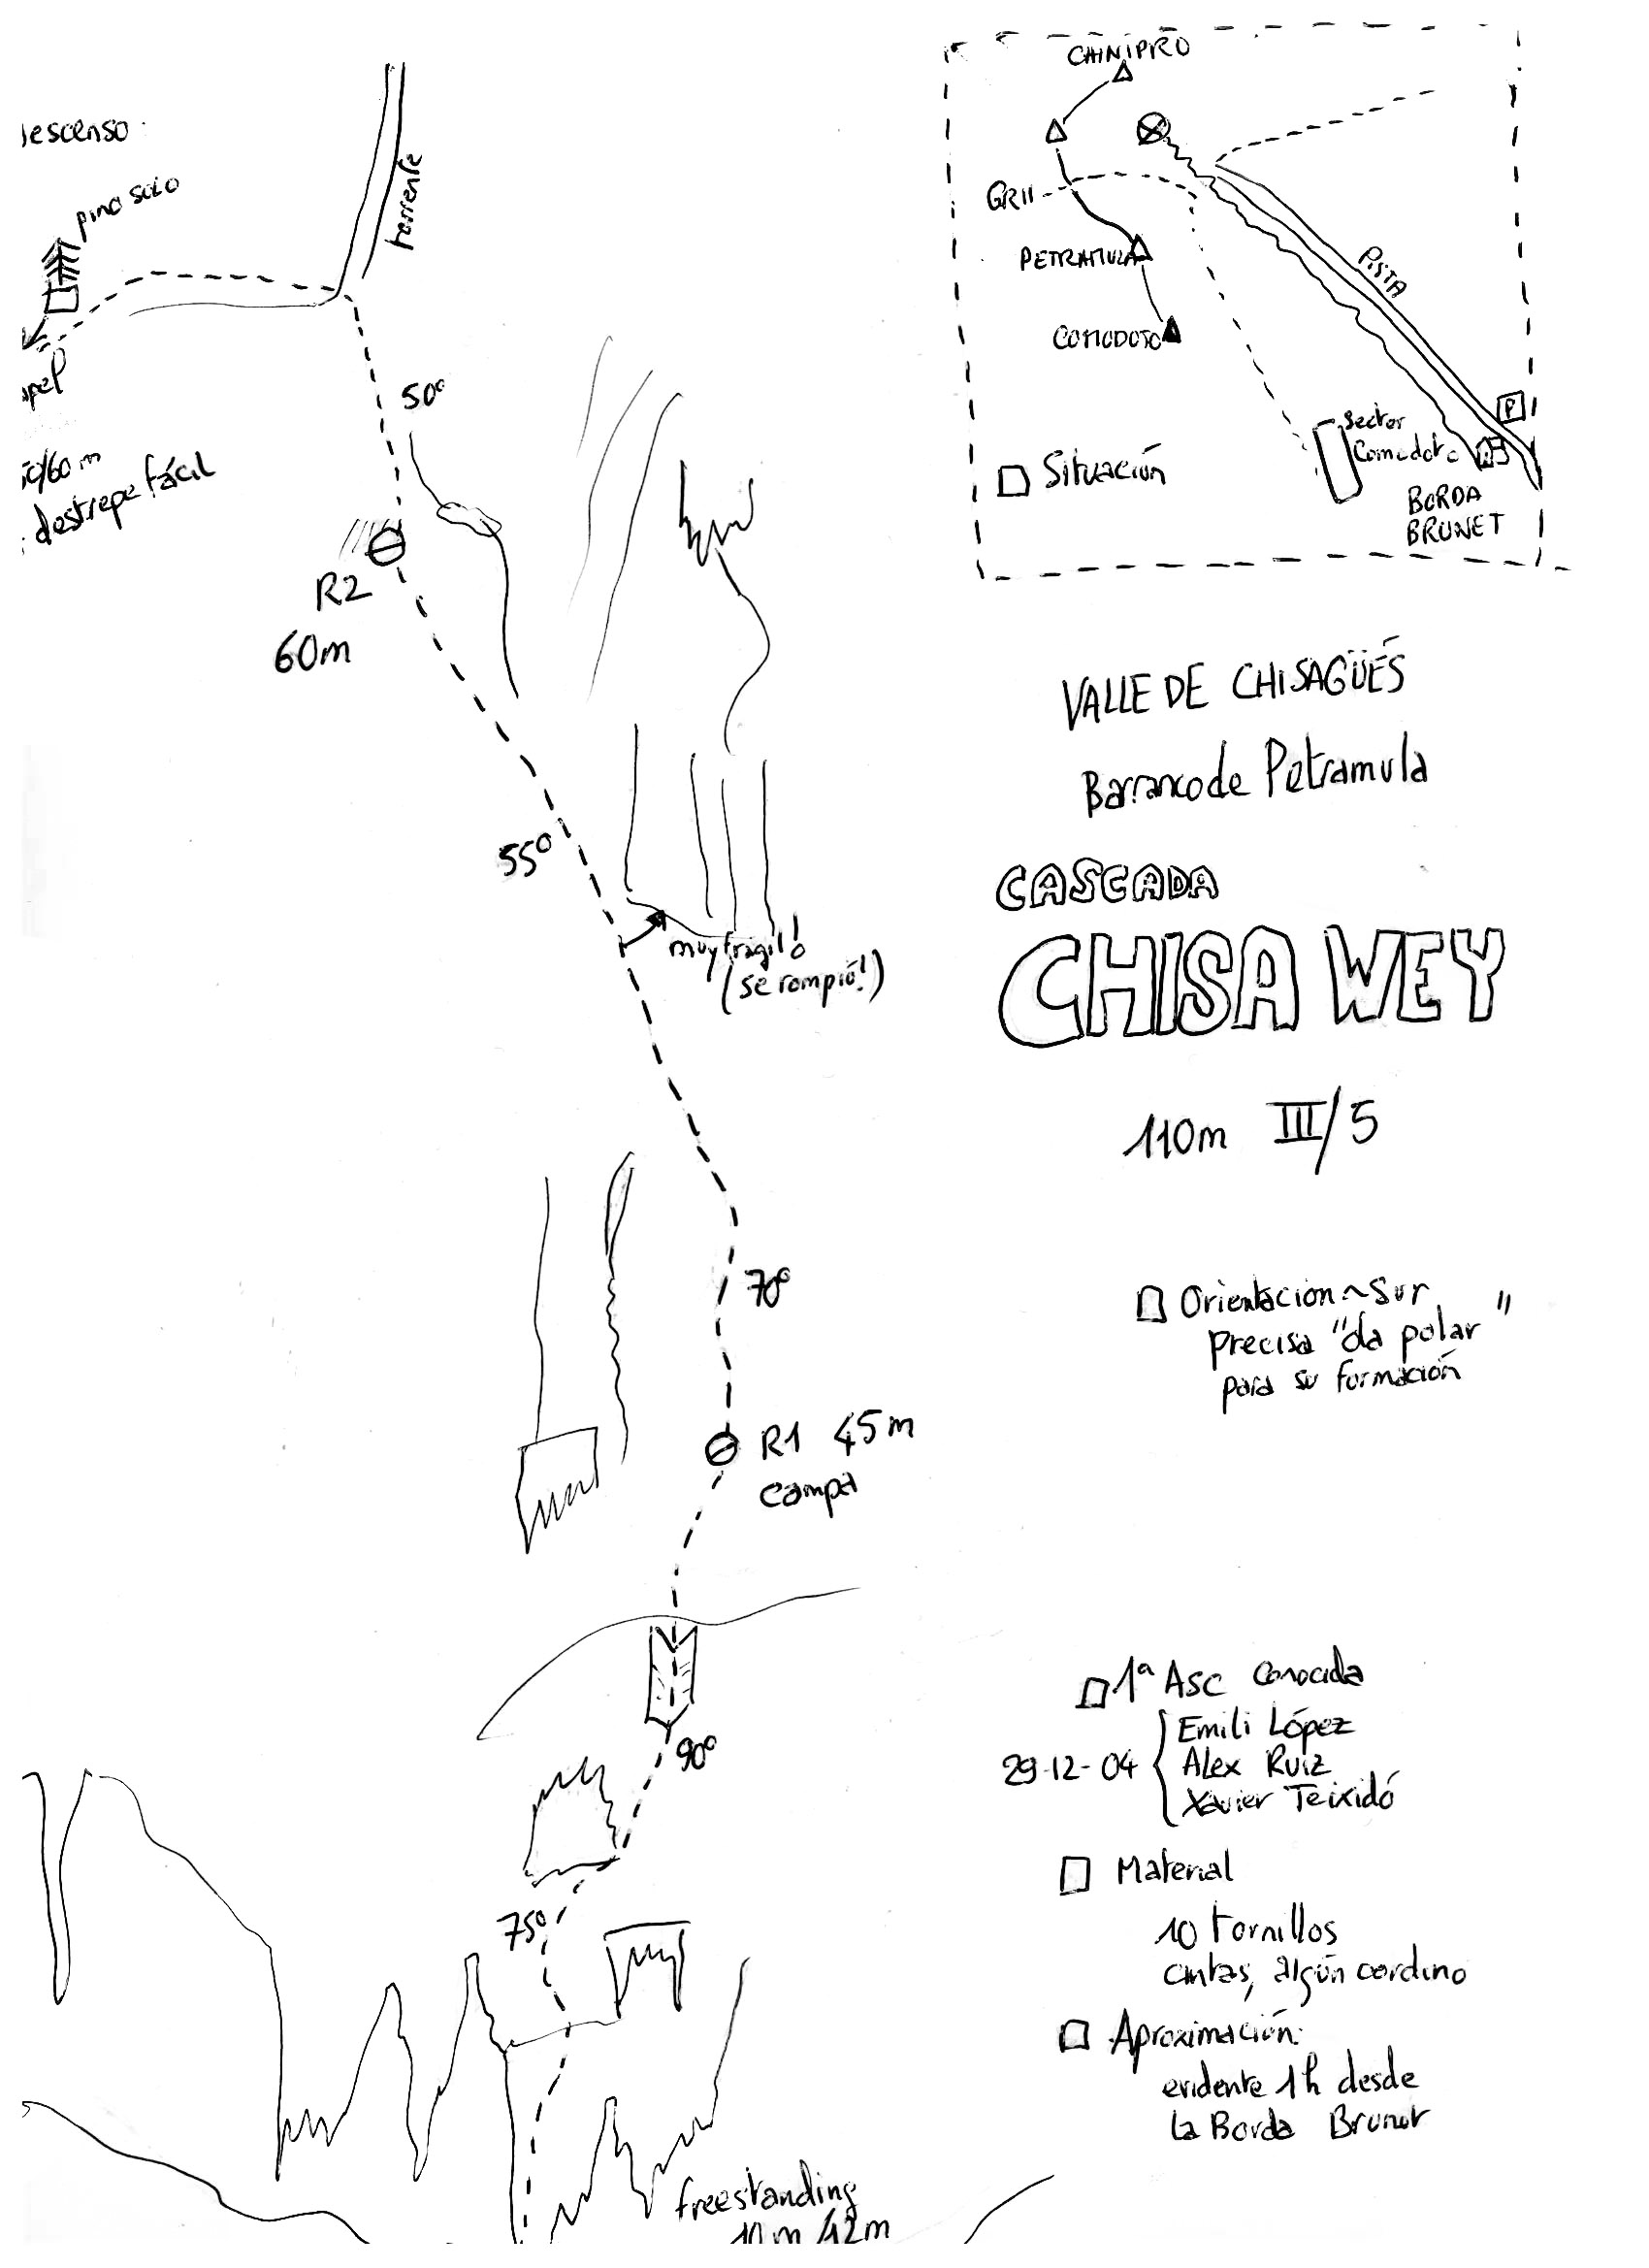 descenso:
pino solo
torrente
50º
50/60 m
destrepe fácil
R2
60m
55º
muy frágil!
(se rompió!)
70º
R1 45m
campa
90º
75º
freestanding
10m/12m
CHINIPRO
GR11
PETRAMULA
COMODOTO
PISTA
P
Sector
Comodoto
BORDA
BRUNET
Situación
VALLE DE CHISAGÜÉS
Barranco de Petramula
CASCADA
CHISA WEY
110m III/5
Orientación ~ Sur
precisa "ola polar"
para su formación
1ª Asc conocida
29-12-04
Emili López
Alex Ruiz
Xavier Teixidó
Material
10 tornillos
cintas, algún cordino
Aproximación:
evidente 1h desde
la Borda Brunet